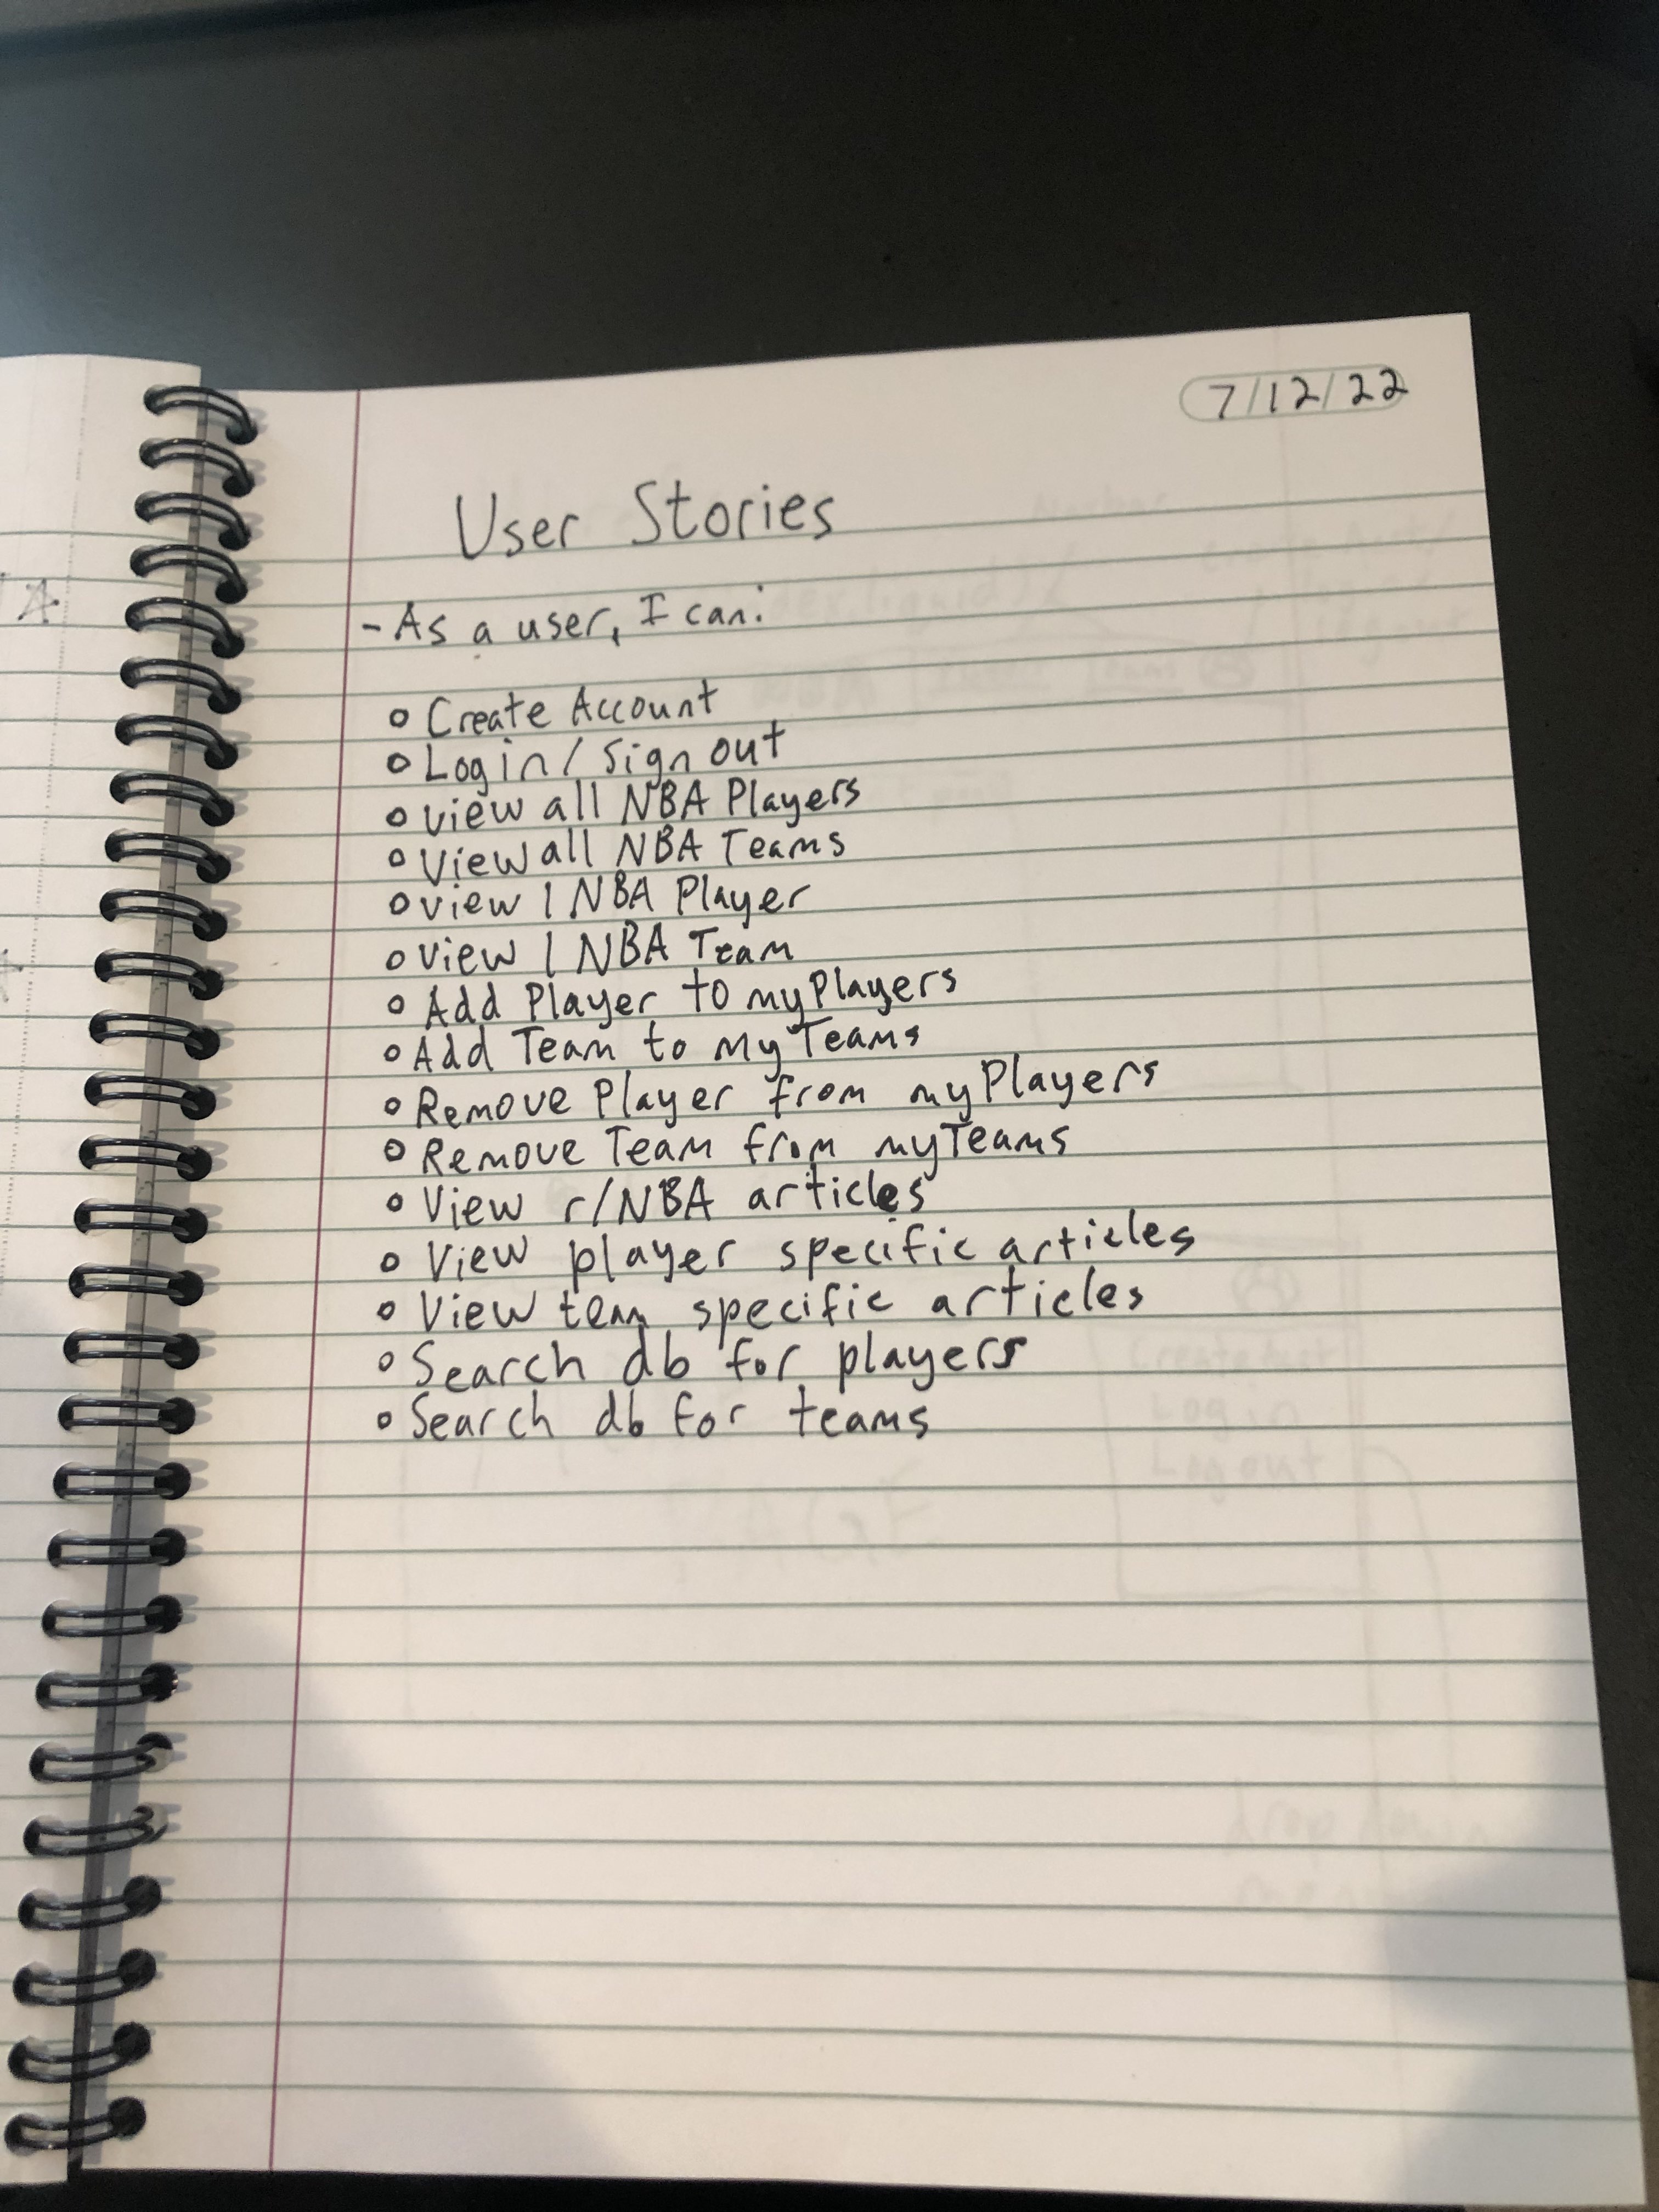 7/12/22
User Stories
- As a user, I can:
o Create Account
o Login / Sign out
o View all NBA Players
o View all NBA Teams
o View 1 NBA Player
o View 1 NBA Team
o Add Player to myPlayers
o Add Team to myTeams
o Remove Player from myPlayers
o Remove Team from myTeams
o View r/NBA articles
o View player specific articles
o View team specific articles
o Search db for players
o Search db for teams